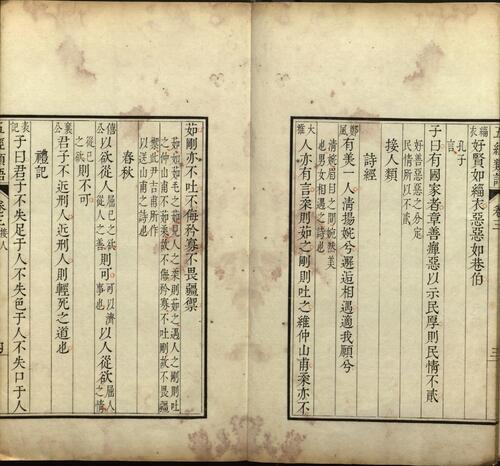 緇衣 孔子言 好賢如緇衣惡惡如巷伯
子曰有國家者章善癉惡以示民厚則民情不貳
好善惡惡之分定
民情所以不貳
接人類
詩經
鄭風 有美一人清揚婉兮邂逅相遇適我願兮
清婉眉目之間婉然美
也男女相遇之詩也
大雅 人亦有言柔則茹之剛則吐之維仲山甫柔亦不
茹剛亦不吐不侮矜寡不畏彊禦
茹如茹毛之茹見人之柔則茹之遇人之剛則吐
之仲山甫不茹柔故不侮矜寡不吐剛故不畏彊
禦此尹吉甫所作
以送山甫之詩也
春秋
僖公 以欲從人屈己之欲從人之善則可可以濟事也以人從欲屈人之情
從己之欲則不可
襄公 君子不近刑人近刑人則輕死之道也
禮記
表記 子曰君子不失足于人不失色于人不失口于人
五經類語 接人 四